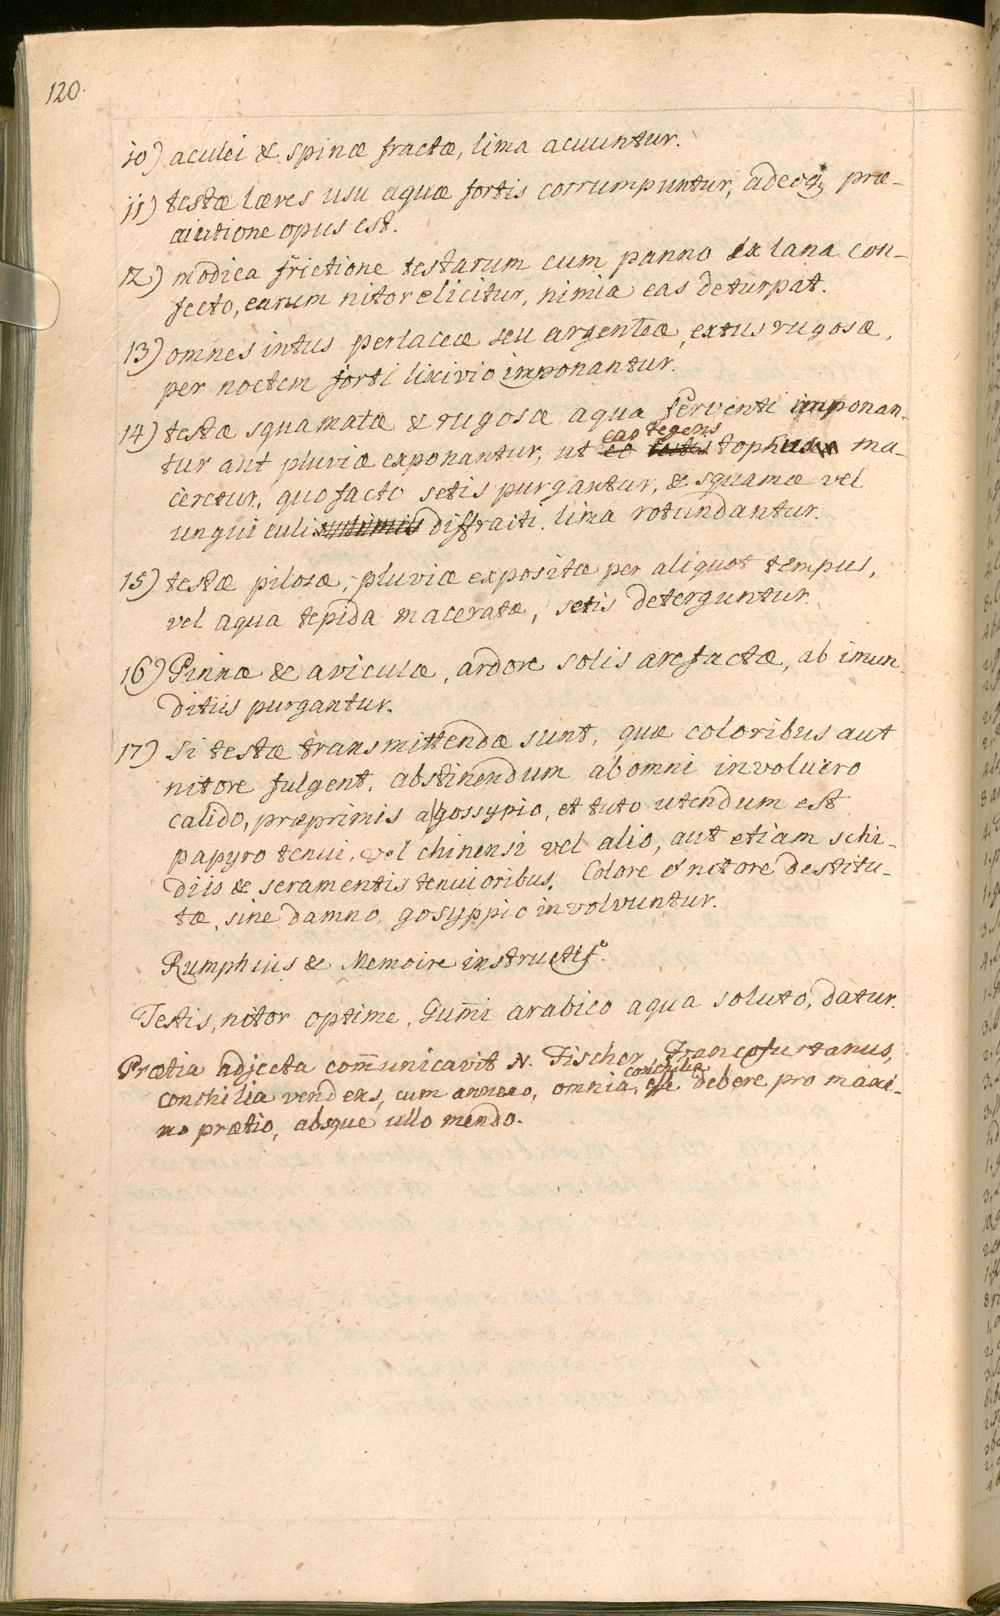 120.
10) aculei & spinæ fractæ, lima acuuntur.
11) testæ læves usu aquæ fortis corrumpuntur, adeoq; præ-
cautione opus est.
12) modica frictione testarum cum panno ex lana con-
fecto, earum nitor elicitur, nimia eas deturpat.
13) omnes intus perlaceæ seu argenteæ, extus rugosæ,
per noctem forti lixivio imponantur.
14) testæ squamatæ & rugosæ aqua ferventi imponan-
eas tegens
tur aut pluviæ exponantur, ut tophus ma-
ceretur, quo facto setis purgantur, & squamæ vel
unguiculi diffracti lima rotundantur.
15) testæ pilosæ, pluviæ expositæ per aliquot tempus,
vel aqua tepida maceratæ, setis deterguntur.
16) Pinnæ & aviculæ, ardore solis arefactæ, ab imun
ditiis purgantur.
17) Si testæ transmittendæ sunt, quæ coloribus aut
nitore fulgent, abstinendum ab omni involucro
calido, præprimis a gossypio, et tuto utendum est
papyro tenui, vel chinensi vel alio, aut etiam schi-
diis & seramentis tenuioribus. Colore & nitore destitu-
tæ, sine damno, gosyppio involvuntur.
Rumphius & Memoire instructif.
Testis, nitor optime, Gum̄i arabico aqua soluto, datur.
Prætia adjecta com̄unicavit N. Fischer, Francofurtanus,
conchilia
conchilia vendens, cum annexo, omnia, esse debere pro maxi-
mo prætio, absque ullo mendo.